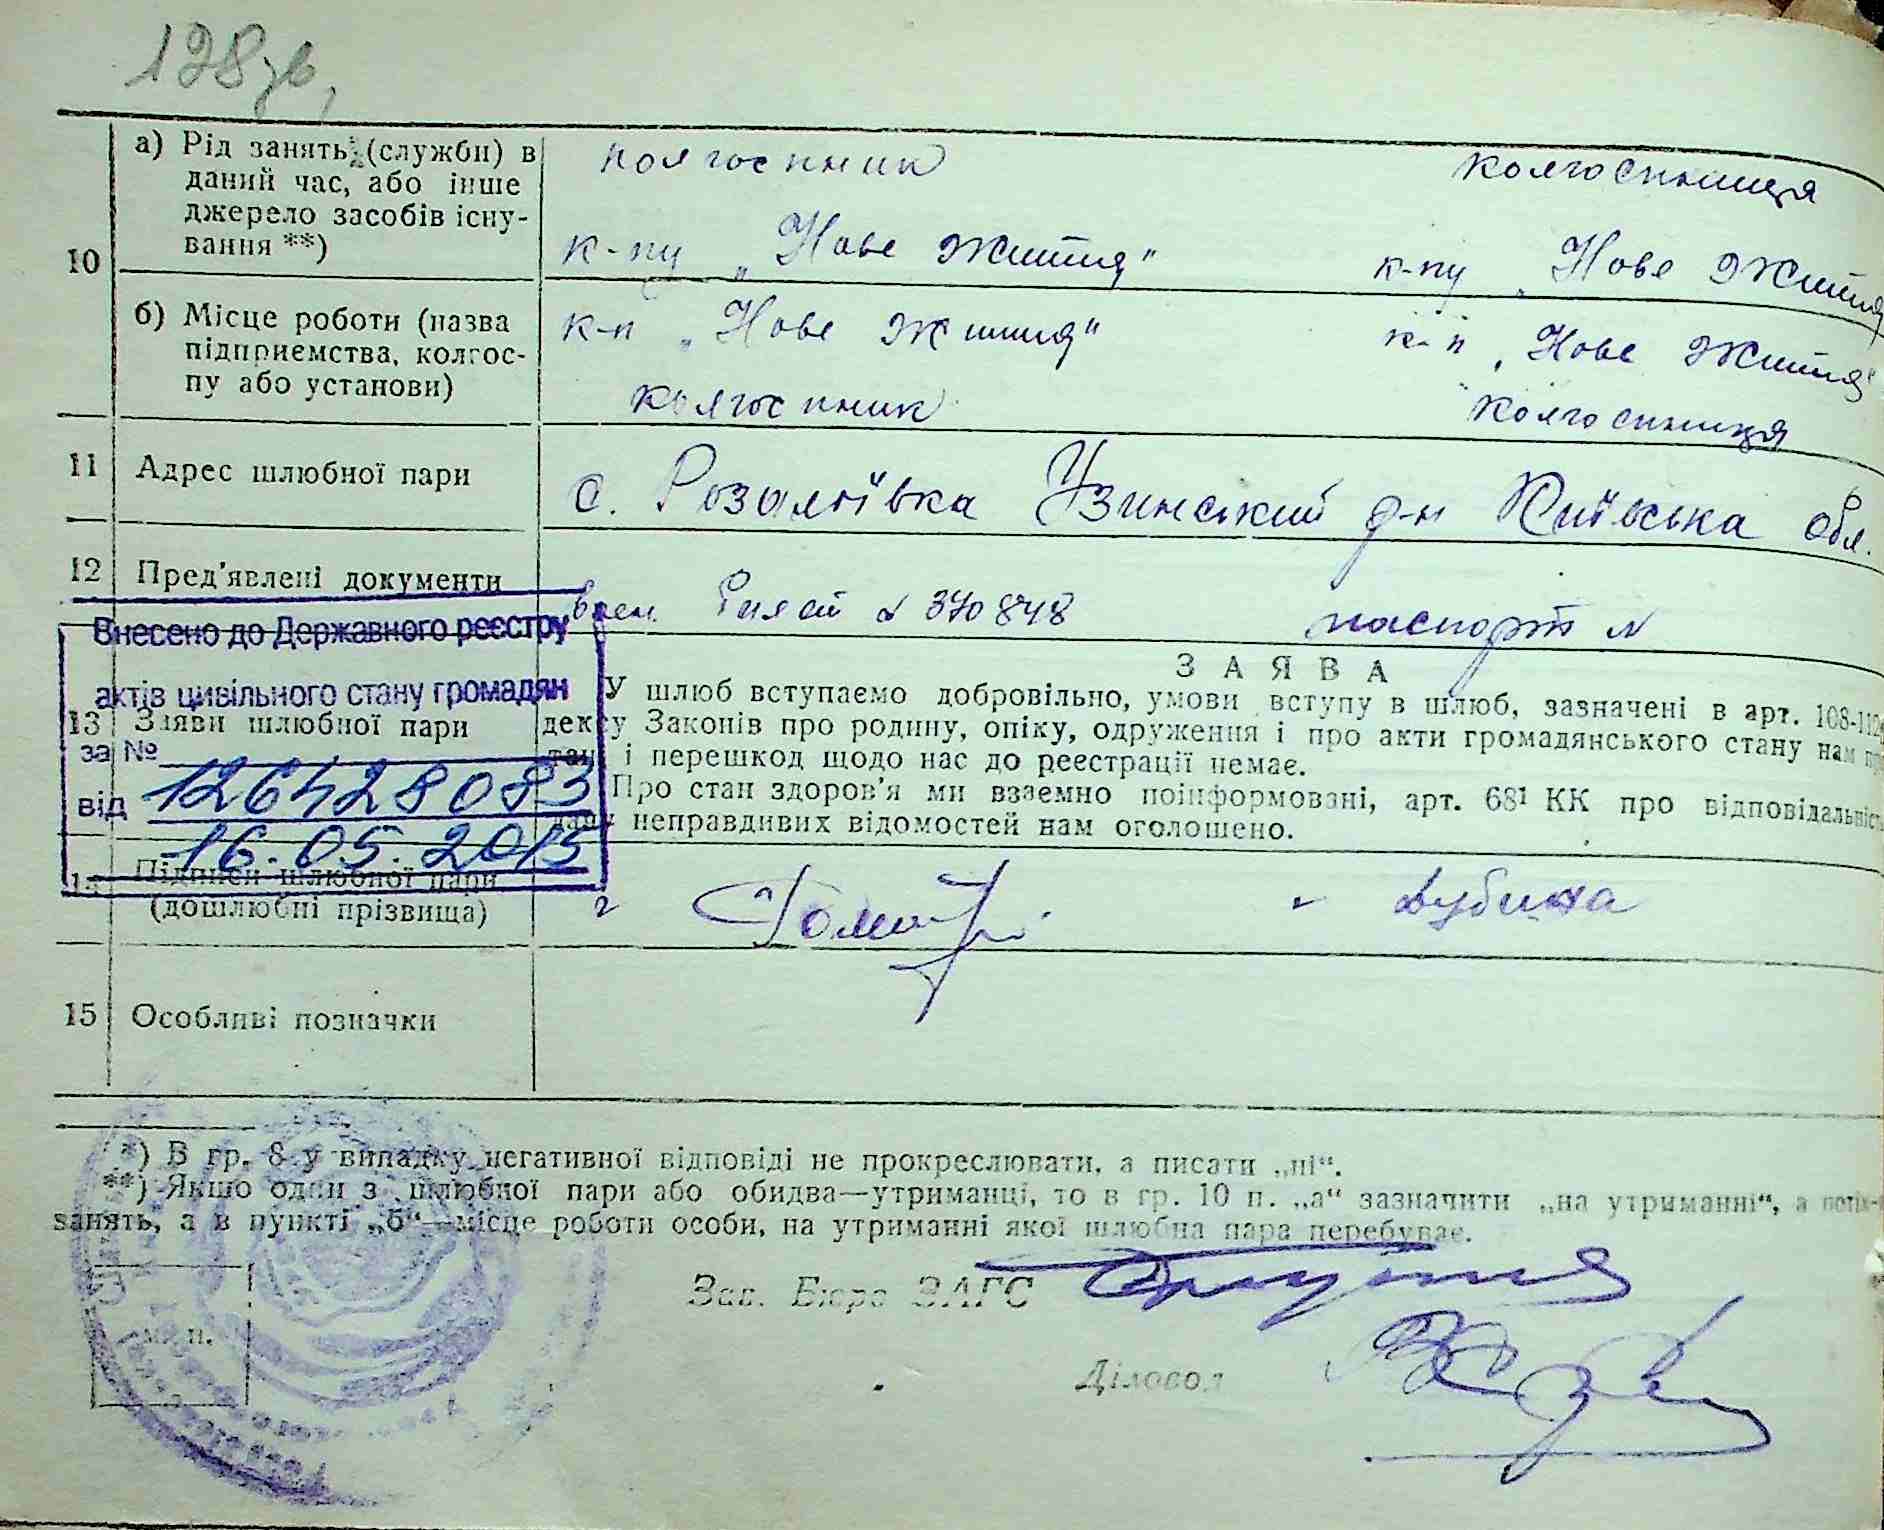 128 зв,
10
а) Рід занять (служби) в
даний час, або інше
джерело засобів існу-
вання **)
колгоспник
к-пу „Нове життя“
колгоспниця
к-пу „Нове життя
б) Місце роботи (назва
підприємства, колгос-
пу або установи)
к-п „Нове життя“
колгоспник
к-п „Нове життя“
колгоспниця
11 Адрес шлюбної пари
с. Розаліївка Узинський р-н Київська обл.
12 Пред'явлені документи
370848
паспорт №
Внесено до Державного реєстру
актів цивільного стану громадян
за №
126428083
від
16.05.2015
13 Заяви шлюбної пари
ЗАЯВА
У шлюб вступаємо добровільно, умови вступу в шлюб, зазначені в арт. 108-112
дексу Законів про родину, опіку, одруження і про акти громадянського стану нам
і перешкод щодо нас до реєстрації немає.
Про стан здоров'я ми взаємно поінформовані, арт. 68¹ КК про відповідальність
неправдивих відомостей нам оголошено.
14 Підписи шлюбної пари
(дошлюбні прізвища)
Дубина
15 Особливі позначки
*) В гр. 8 у випадку негативної відповіді не прокреслювати, а писати „ні“.
**) Якщо один з шлюбної пари або обидва—утриманці, то в гр. 10 п. „а“ зазначити „на утриманні“, а
занять, а в пункті „б“—місце роботи особи, на утриманні якої шлюбна пара перебуває.
Зав. Бюро ЗАГС
м. п.
Діловод